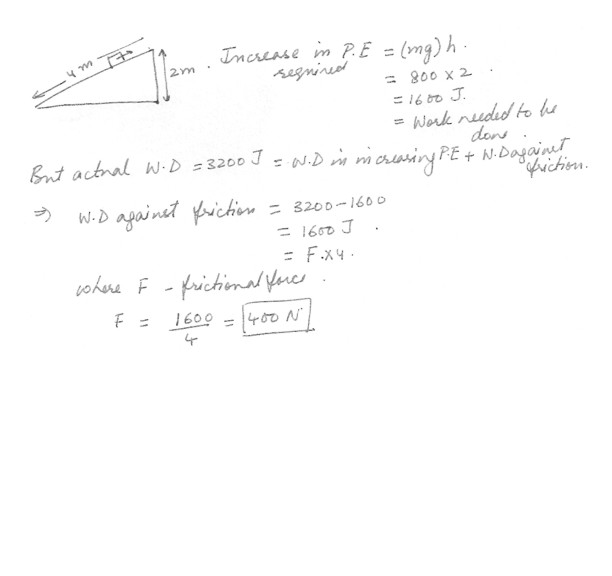 4 m
2m . Increase in P.E = (mg) h .
required
= 800 x 2 .
= 1600 J.
= Work needed to be
done .
But actual W.D = 3200 J = W.D in increasing P.E + W.D against
friction.
⇒ W.D against friction = 3200 - 1600
= 1600 J .
= F. x 4 .
where F - frictional force .
F = 1600/4 = 400 N